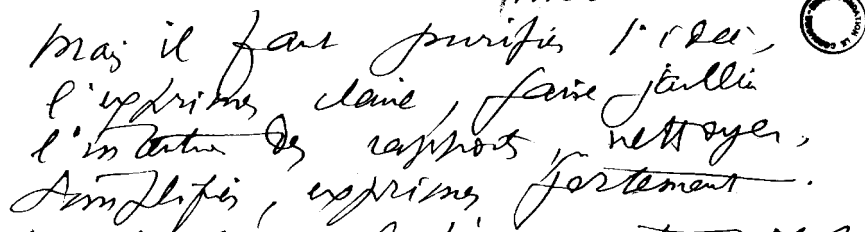 mais il faut purifier l'idée,
l'exprimer claire, faire jaillir
des rapports, nettoyer,
simplifier, exprimer fortement.